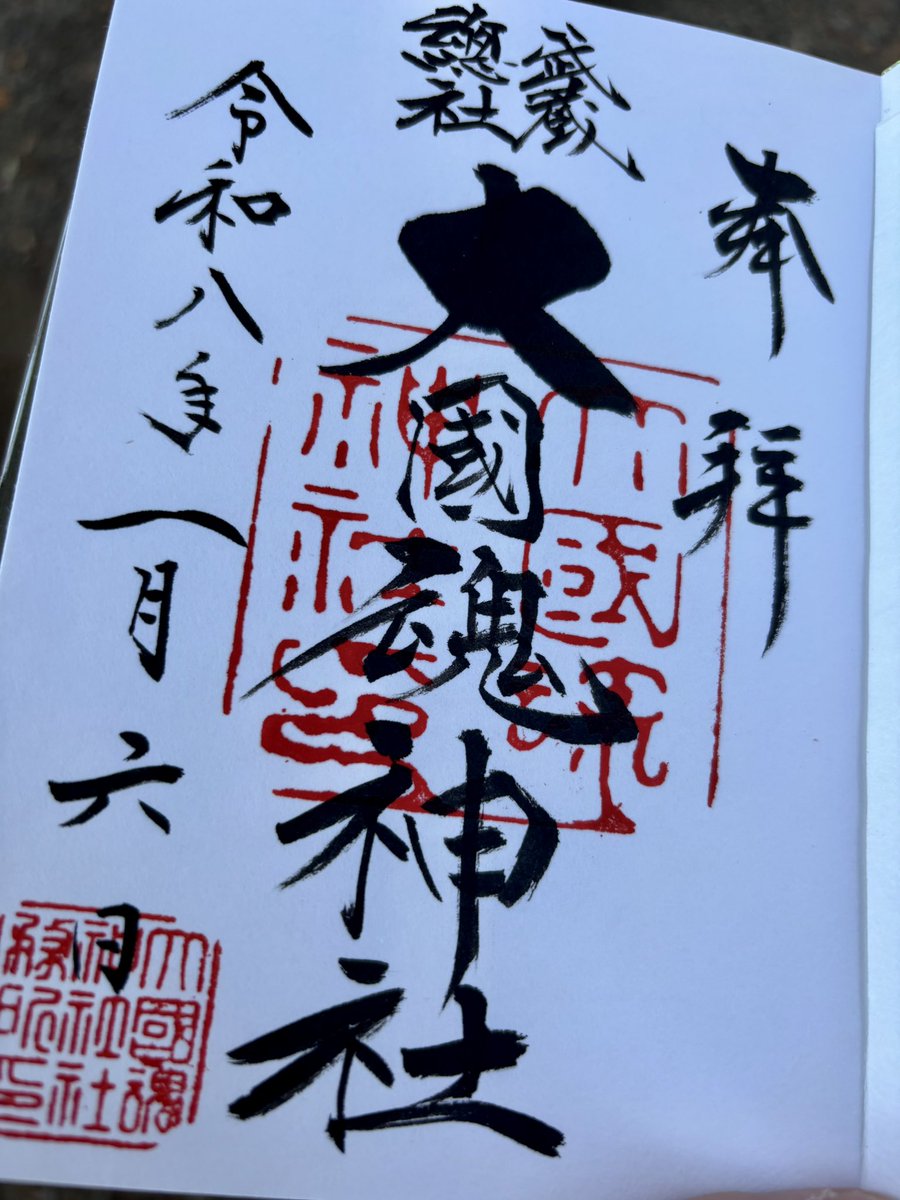 奉拝
武蔵
總社
大國魂神社
令和八年一月六日
大國魂
神社